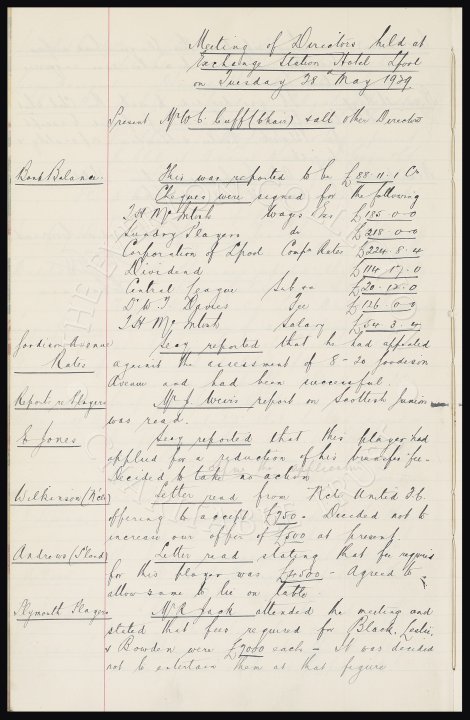 Meeting of Directors held at
Exchange Station Hotel Lpool
on Tuesday 28th May 1929
Present Mr W C Cuff (Chair) & all other Directors
Bank Balance. This was reported to be £88.11.1 Cr
Cheques were signed for the following
T. H. McIntosh Wages Etc £185-0-0
Sundry Players do £218-0-0
Corporation of Lpool Rates £224.8.4
Dividend £114.17.0
Central League Subs £20.12.0
Dr W. J. Davies Fee £126.0.0
T. H. McIntosh Salary £54.3.4
Goodison Avenue Secy reported that he had appealed
Rates against the assessment of 8-20 Goodison
Avenue and had been successful.
Reports re Players Mr report on Scottish Junior
was read.
E Jones Secy reported that this player had
applied for a reduction of his transfer fee.
Decided to take no action
Wilkinson (N) Letter read from United F.C.
offering to accept £750. Decided not to
increase our offer of £500 at present.
Andrews (S'land) Letter read stating that fee required
for this player was £4500 - Agreed to
allow same to lie on table.
Plymouth Players Mr R Jack attended the meeting and
stated that fees required for Black, Leslie,
& Bowden were £7000 each - It was decided
not to entertain them at that figure